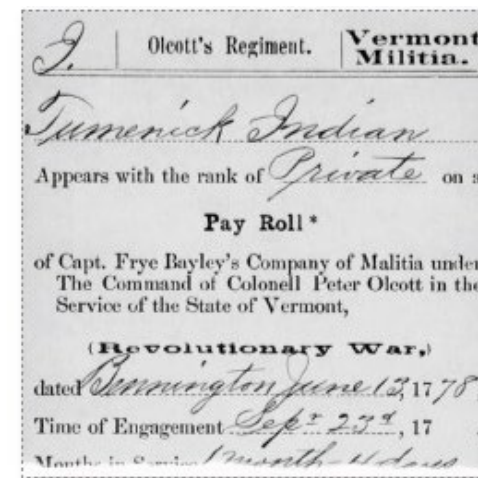 I. Olcott's Regiment. Vermont Militia.
Tumenick Indian
Appears with the rank of Private on a
Pay Roll*
of Capt. Frye Bayley's Company of Malitia under
The Command of Colonell Peter Olcott in the
Service of the State of Vermont,
(Revolutionary War,)
dated Bennington June 13, 1778
Time of Engagement Sepr 23d, 17
Months in Service 1 month - 4 days